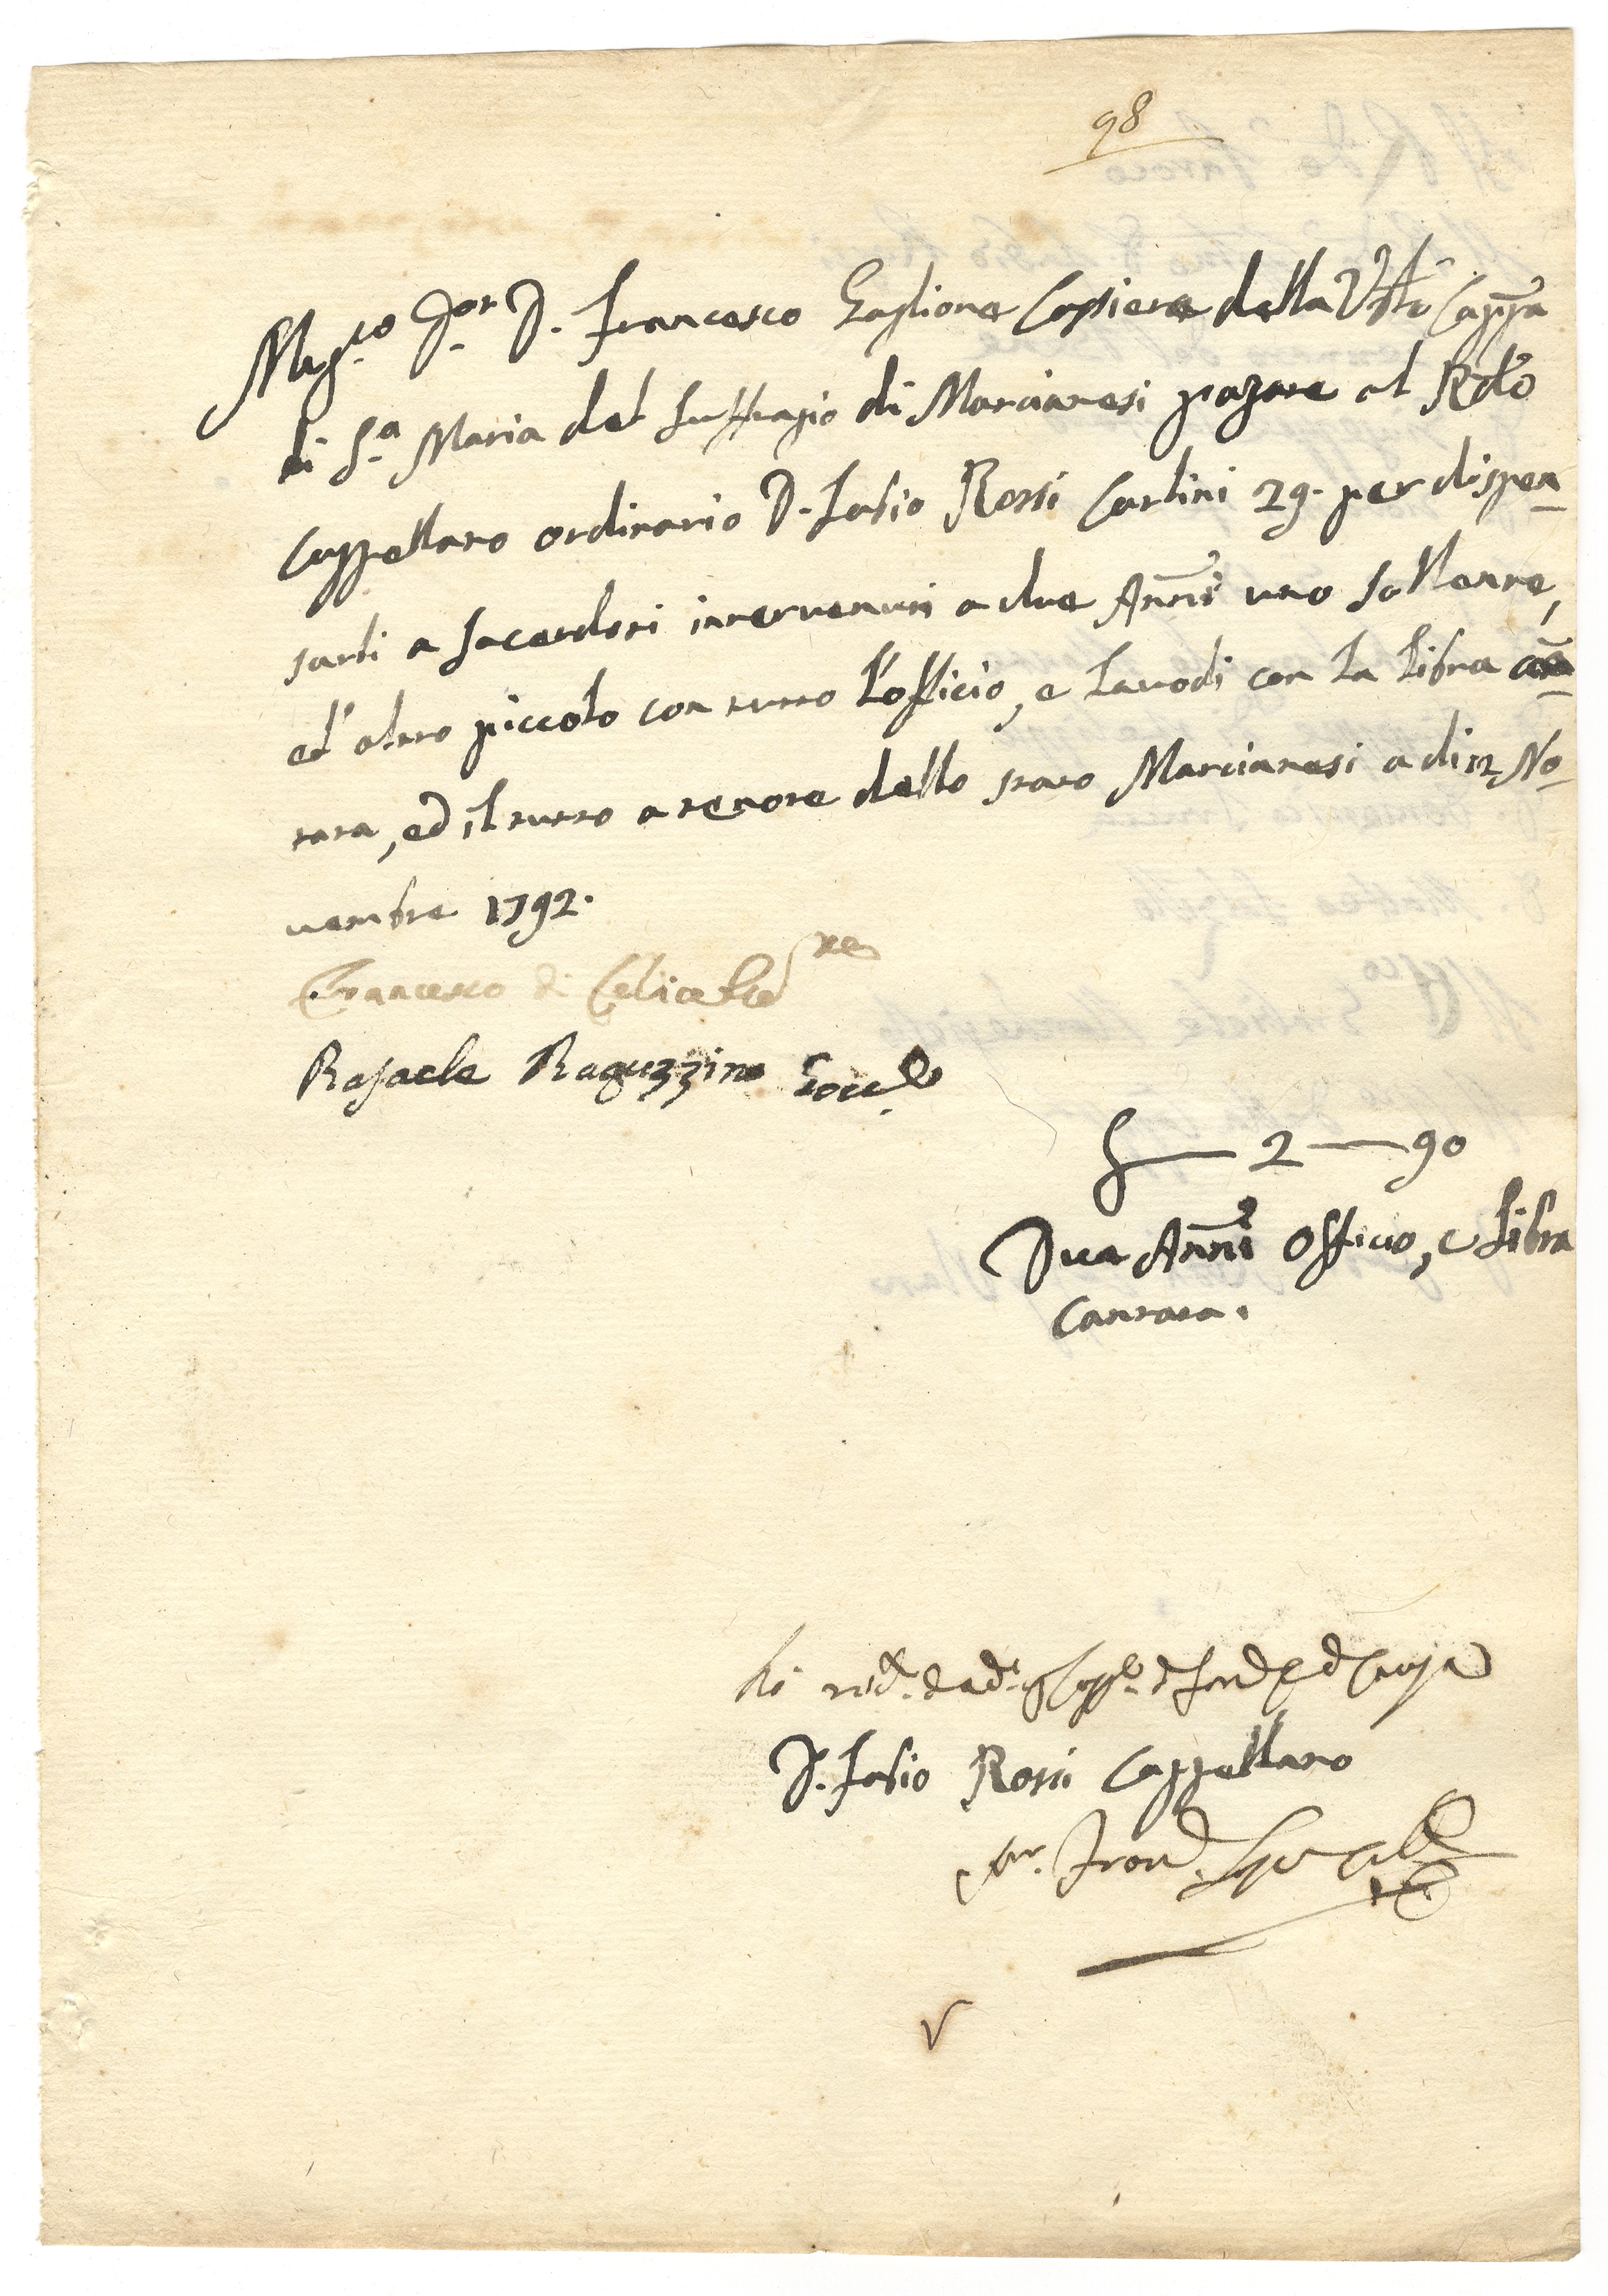 98
Mag.co Sor D. Francesco Taglione Cassiere della Vble Cappa
di S.a Maria del Suffragio di Marcianesi pagare al Rdo
Cappellano ordinario D. Fabio Rossi Carlini 29. per dispen-
sarli a Sacerdoti intervenuti a due Anni uno sollenne,
ed' altro piccolo con tutto l'officio, e Lavodi con la Libra can-
tata, ed il tutto a tenore dello stato Marcianesi a di 12 No-
vembre 1792.
Francesco di
Rafaele Raguzzino
2 — 90
Due Anni Officio, e Libra
Cantata.
D. Fabio Rossi Cappellano